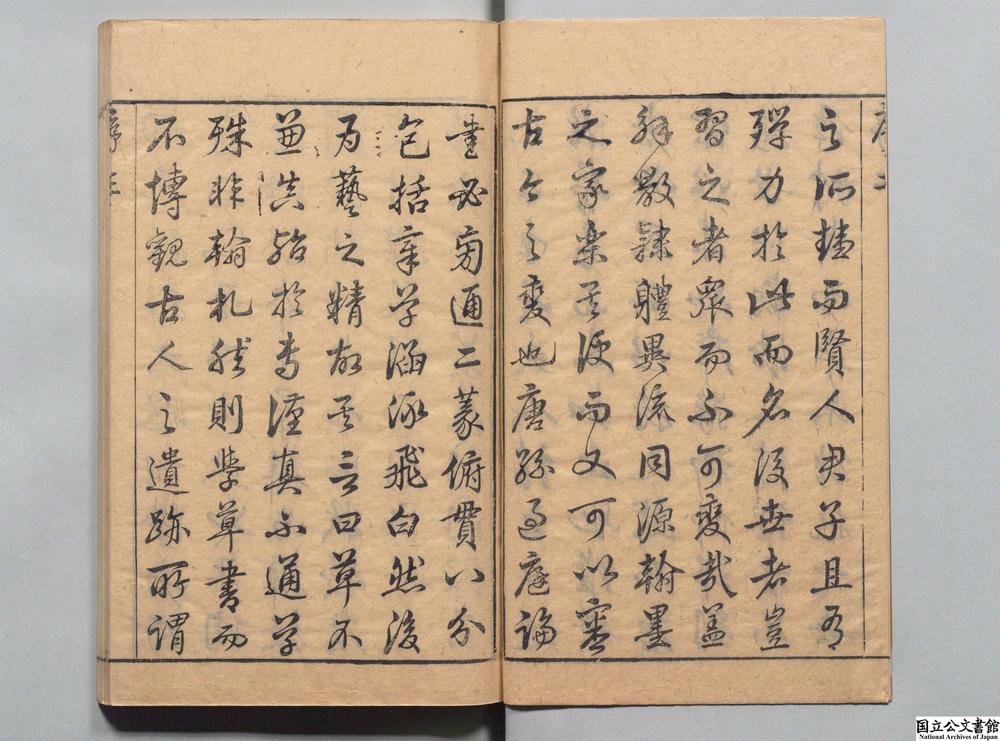 序 二
之所棲而賢人君子且有
殫力於此而名後世者豈
習之者衆而不可變哉盖
解散隷體異流同源翰墨
之家樂其便而又可以審
古今之變也唐孫過庭論
書必旁通二篆俯貫八分
包括章学涵泳飛白然後
为藝之精故其言曰草不
兼真殆於専謹真不通学
殊非翰札然則學草書而
不博觀古人之遺跡所謂
序 三
国立公文書館
National Archives of Japan